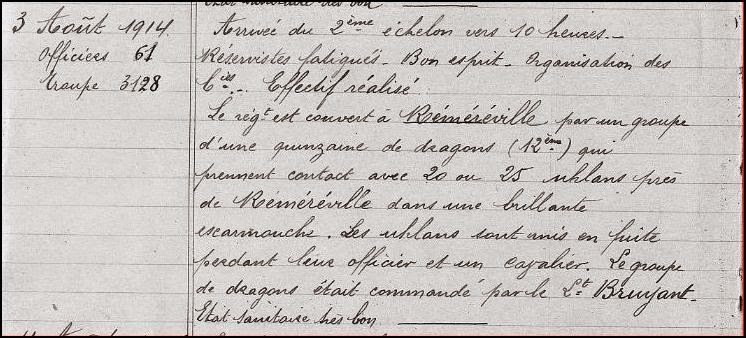 Etat sanitaire très bon
3 Août 1914
Officiers 61
Troupe 3128
Arrivée du 2ème échelon vers 10 heures.-
Réservistes fatigués - Bon esprit - Organisation des
Cies.... Effectif réalisé.
Le régt est couvert à Réméréville par un groupe
d'une quinzaine de dragons (12ème) qui
prennent contact avec 20 ou 25 uhlans près
de Réméréville dans une brillante
escarmouche. Les uhlans sont mis en fuite
perdant leur officier et un cavalier. Le groupe
de dragons était commandé par le Lt Bruyant.
Etat sanitaire très bon.